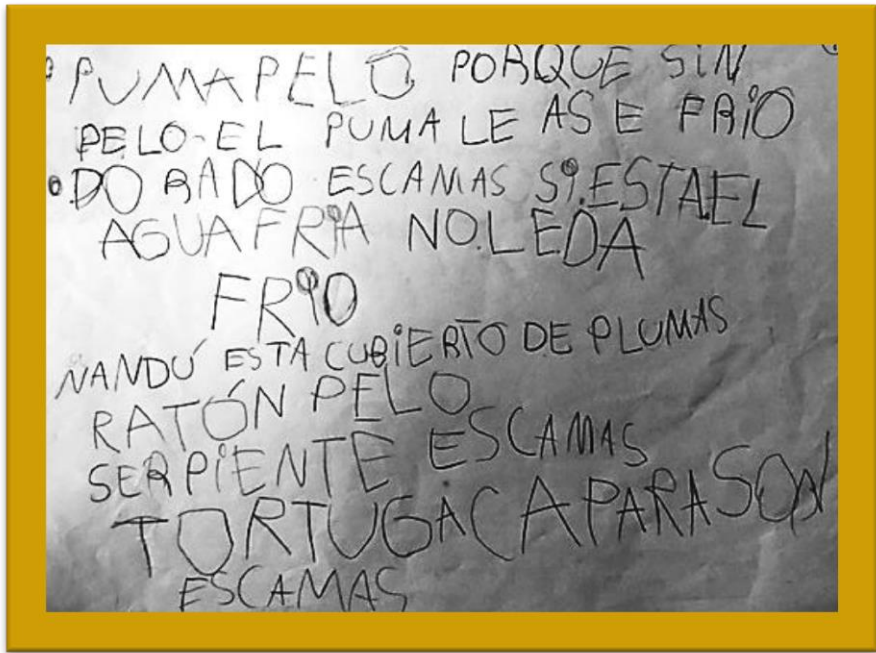 PUMA PELO PORQUE SIN
PELO-EL PUMA LE ASE FRiO
DORADO ESCAMAS Si.ESTAEL
AGUA FRiA NO.LEDA
FRiO
NANDÚ ESTA CUBiERTO DE PLUMAS
RATÓN PELO
SERPiENTE ESCAMAS
TORTUGA CAPARASON
ESCAMAS